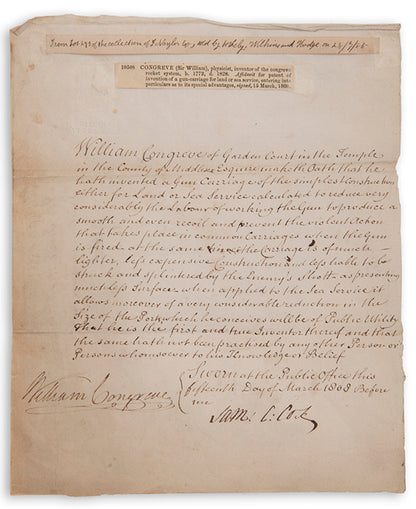 From Lot 293 of the collection of J. Naylor Esq; sold by Sotheby, Wilkinson and Hodge on
CONGREVE (Sir William), physicist, inventor of the congreve
rocket system, b. 1772, d. 1828. Affidavit for patent of
invention of a gun-carriage for land or sea service, entering into
particulars as to its special advantages, signed, 15 March,
William Congreve of Garden Court in the Temple
in the County of Middlesex Esquire maketh Oath that he
hath invented a Gun Carriage of the simplest Construction
either for Land or Sea Service calculated to reduce very
considerably the Labour of working the Gun to produce a
smooth and even recoil and prevent the violent Action
that takes place in common Carriages when the Gun
is fired at the same time the Carriage is of much
lighter, less expensive Construction and less liable to be
struck and splintered by the Enemy's Shott as presenting
much less Surface when applied to the Sea Service it
allows moreover of a very considerable reduction in the
Size of the Port which he conceives will be of Public Utility
that he is the first and true Inventor thereof and that
the same hath not been practised by any other Person or
Persons whomsoever to his Knowledge or Belief
William Congreve
Sworn at the Public Office this
fifteenth Day of March 1808 Before
me